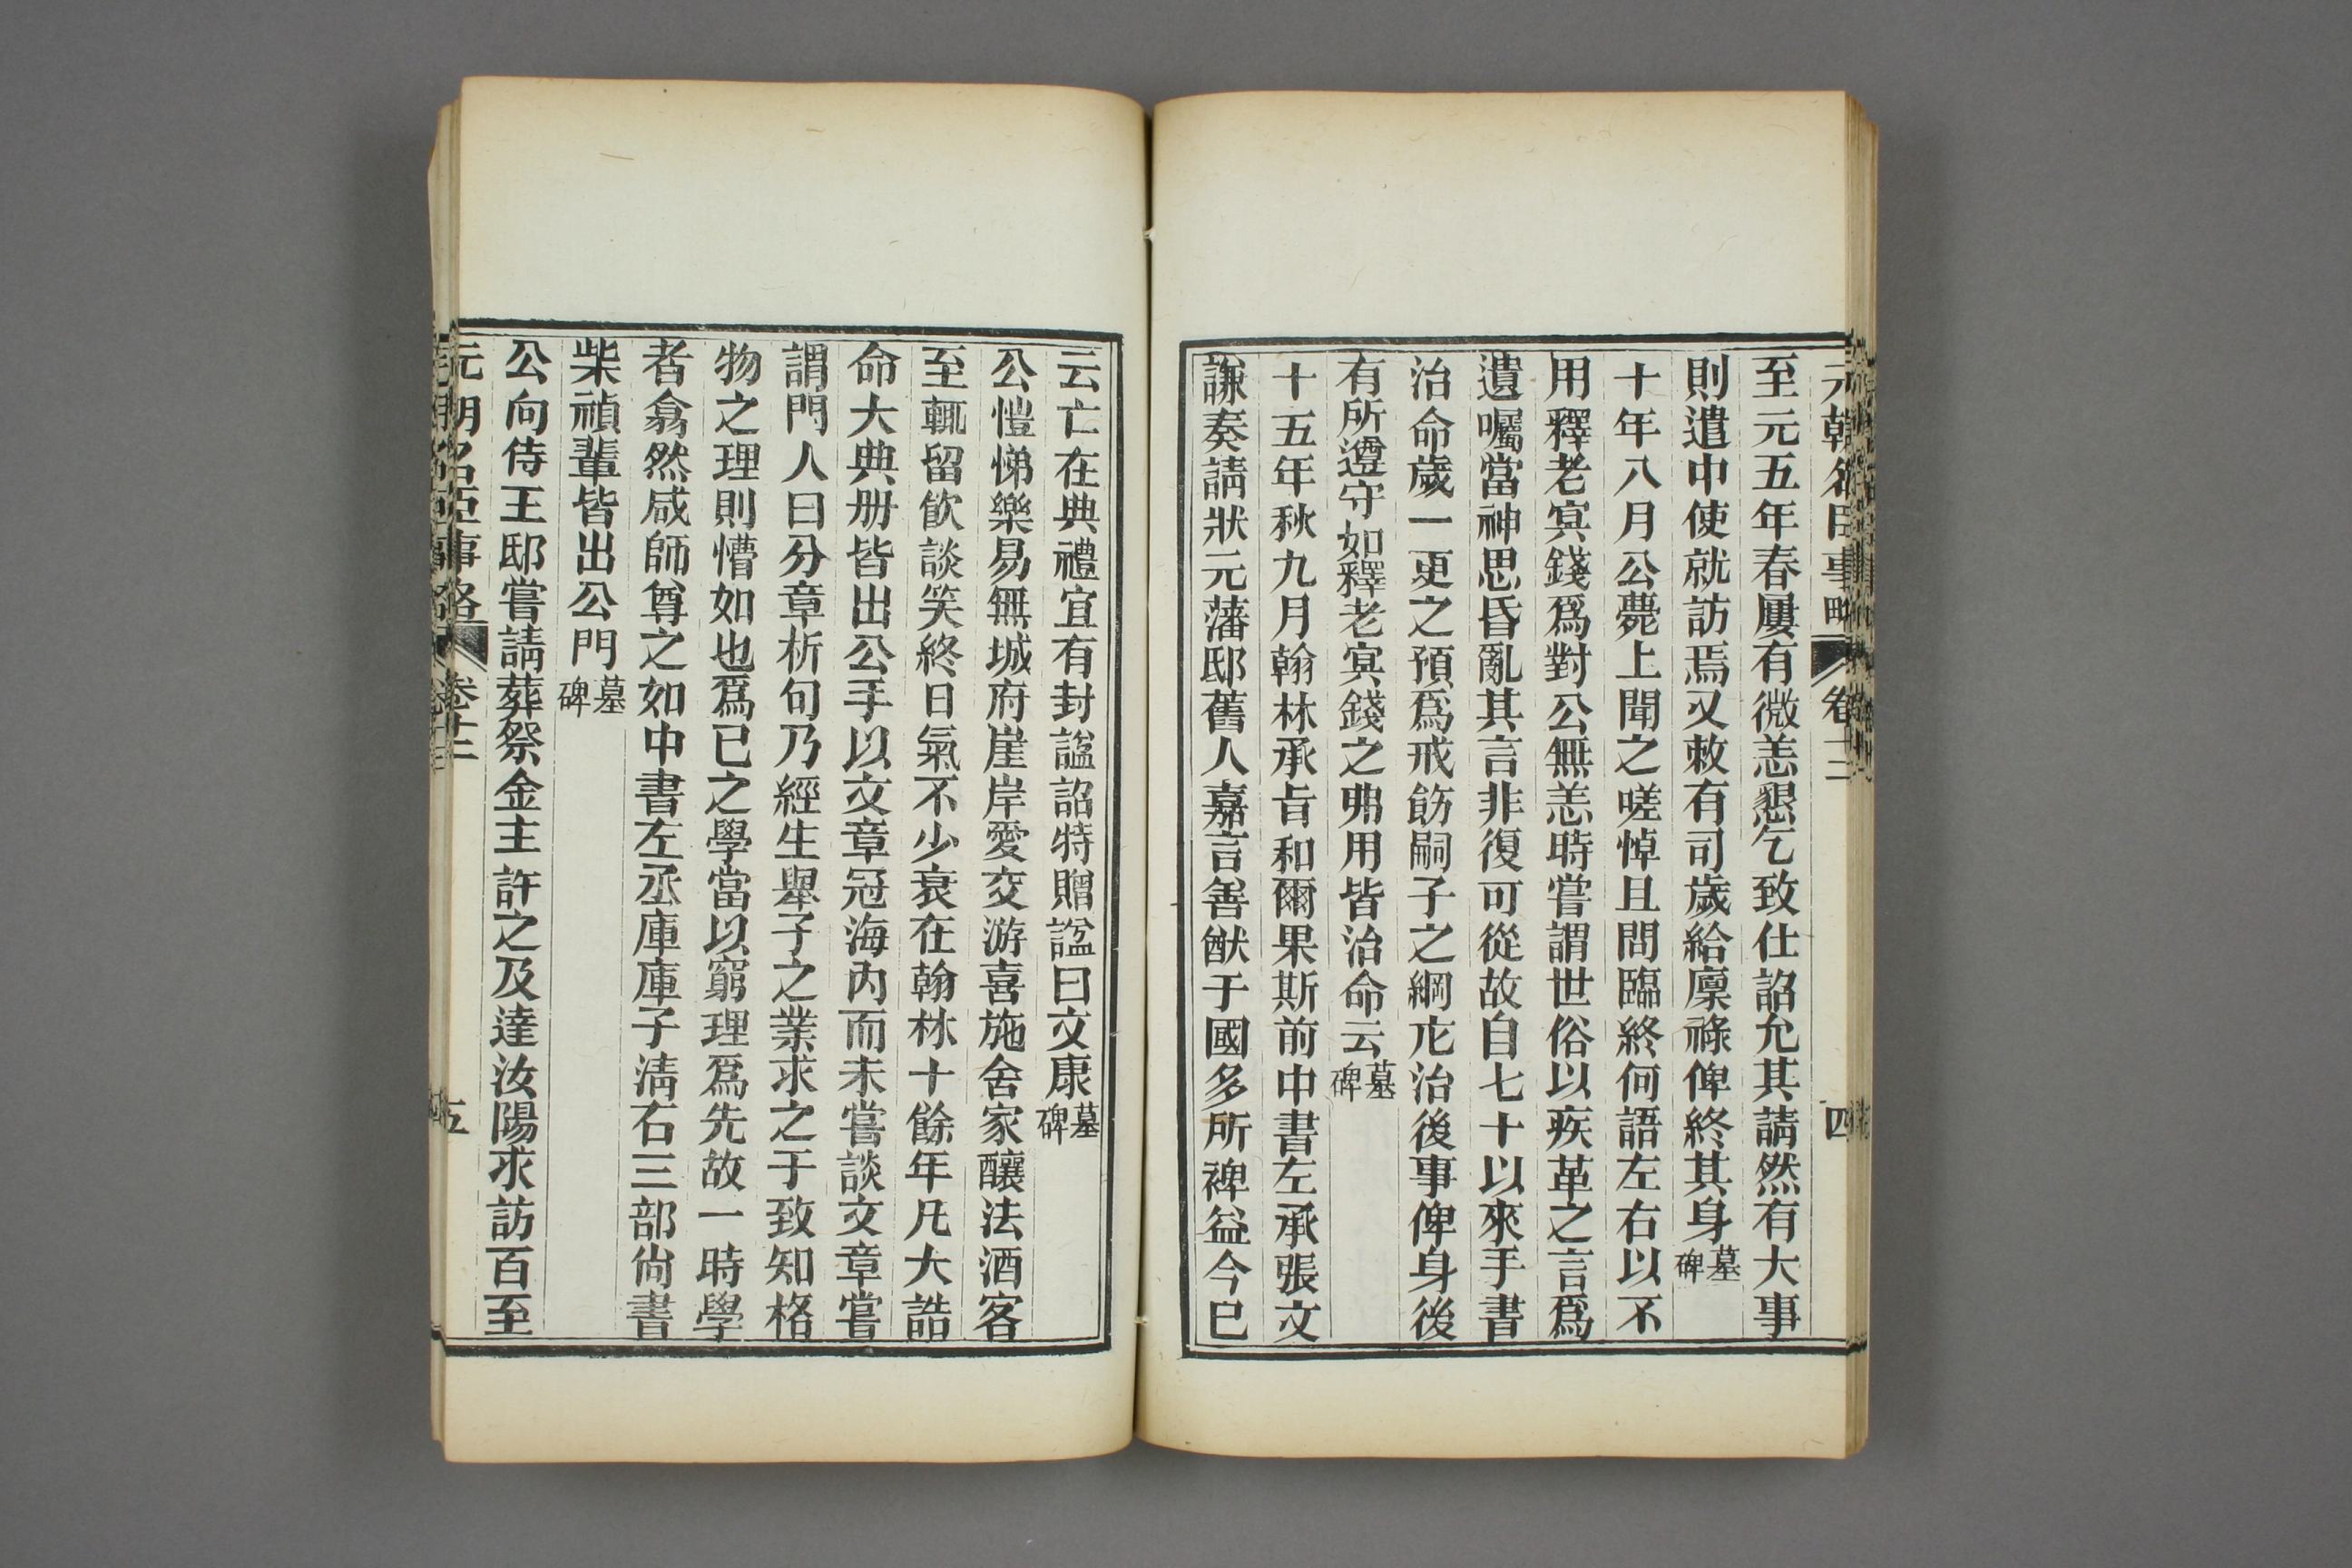 至元五年春屢有微恙懇乞致仕詔允其請然有大事
則遣中使就訪焉又敕有司歲給廩祿俾終其身墓碑
十年八月公薨上聞之嗟悼且問臨終何語左右以不
用釋老寅錢爲對公無恙時嘗謂世俗以疾革之言爲
遺囑當神思昏亂其言非復可從故自七十以來手書
治命歲一更之預爲戒飭嗣子之綱厇治後事俾身後
有所遵守如釋老寅錢之弗用皆治命云墓碑
十五年秋九月翰林承旨和爾果斯前中書左承張文
謙奏請狀元藩邸舊人嘉言善猷于國多所裨益今已
云亡在典禮宜有封諡詔特贈諡曰文康墓碑
公愷悌樂易無城府崖岸愛交游喜施舍家釀法酒客
至輒留飲談笑終日氣不少衰在翰林十餘年凡大誥
命大典册皆出公手以文章冠海內而未嘗談文章嘗
謂門人曰分章析句乃經生舉子之業求之于致知格
物之理則懵如也爲已之學當以窮理爲先故一時學
者翕然咸師尊之如中書左丞庫庫子淸右三部尙書
柴禎輩皆出公門墓碑
公向侍王邸嘗請葬祭金主許之及達汝陽求訪百至
元朝名臣事略 卷十二 五